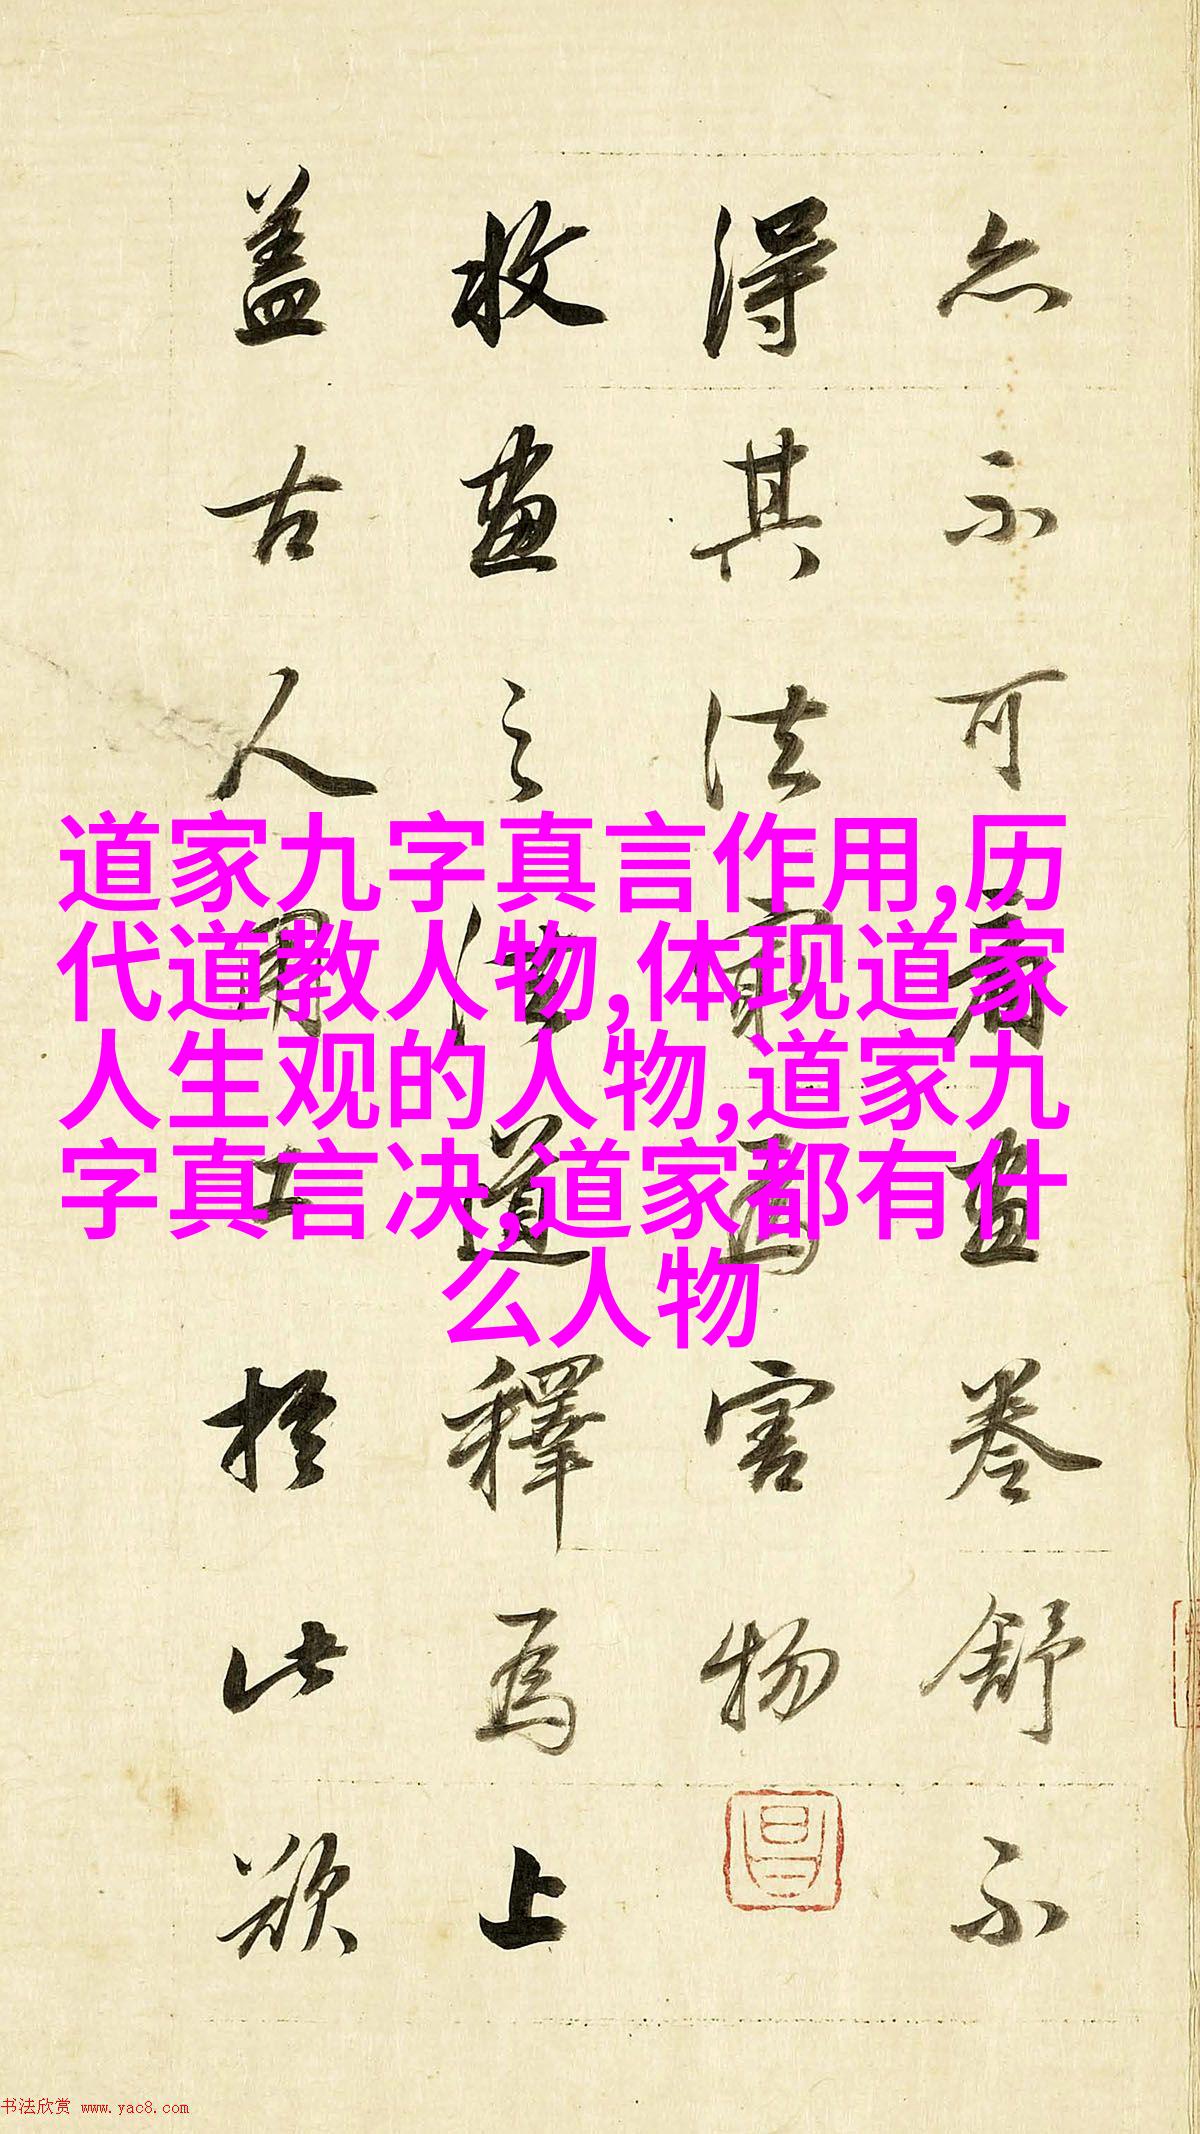 亦不可看畫卷舒不
得其法最為害物
收畫之法道釋為上
蓋古人用工於此欲
道家九字真言作用,历
代道教人物,体现道家
人生观的人物,道家九
字真言决,道家都有什
么人物
书法欣赏 www.yac8.com